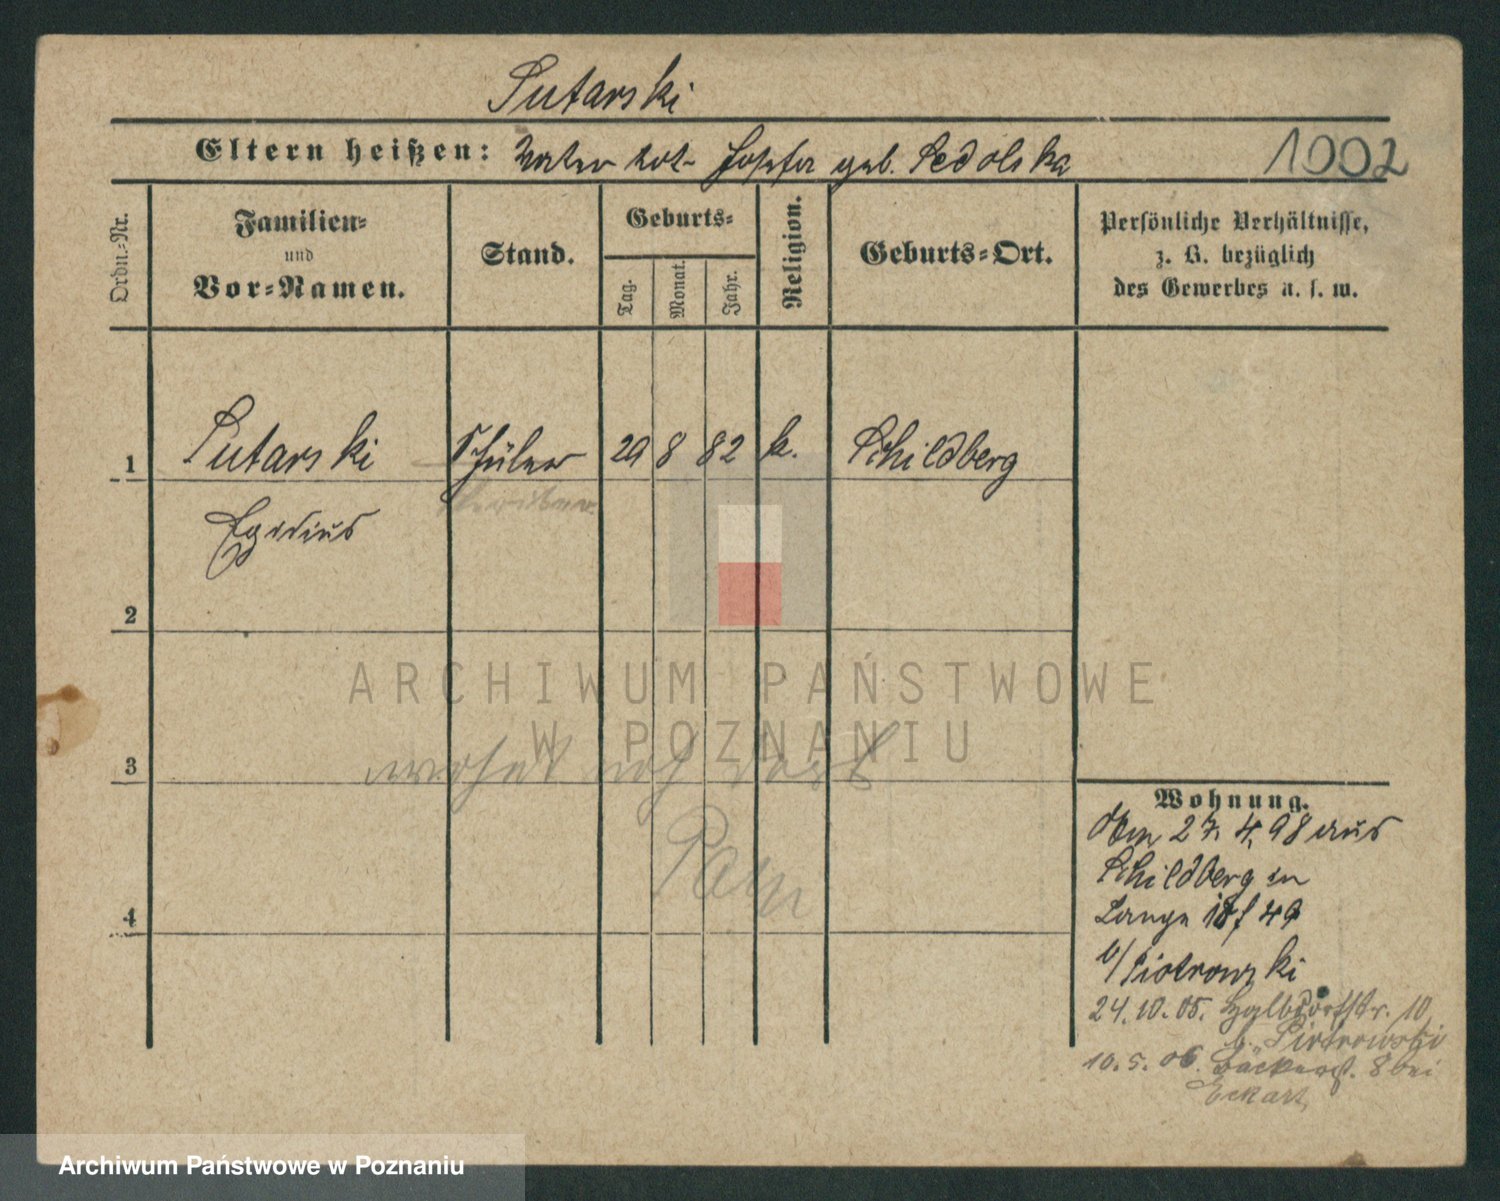 Sutarski
Eltern heißen: Vater tot - Josefa geb. Sedolska
1002
Ordn.-Nr.
Familien-
und
Vor-Namen.
Stand.
Geburts-
Tag.
Monat.
Jahr.
Religion.
Geburts-Ort.
Persönliche Verhältnisse,
z. B. bezüglich
des Gewerbes u. s. w.
1 Sutarski Schüler 29 8 82 k. Schildberg
Schreiber
Egidius
2
3
wohnt noch dort
4
Wohnung.
Den 27. 4. 98 aus
Schildberg in
Lange 49
b/ Piotrowski
24. 10. 05. Halbdorfstr. 10
b. Piotrowski
10. 5. 06. Bäckerst. 8 bei
Eckart
ARCHIWUM PAŃSTWOWE
W POZNANIU
Archiwum Państwowe w Poznaniu